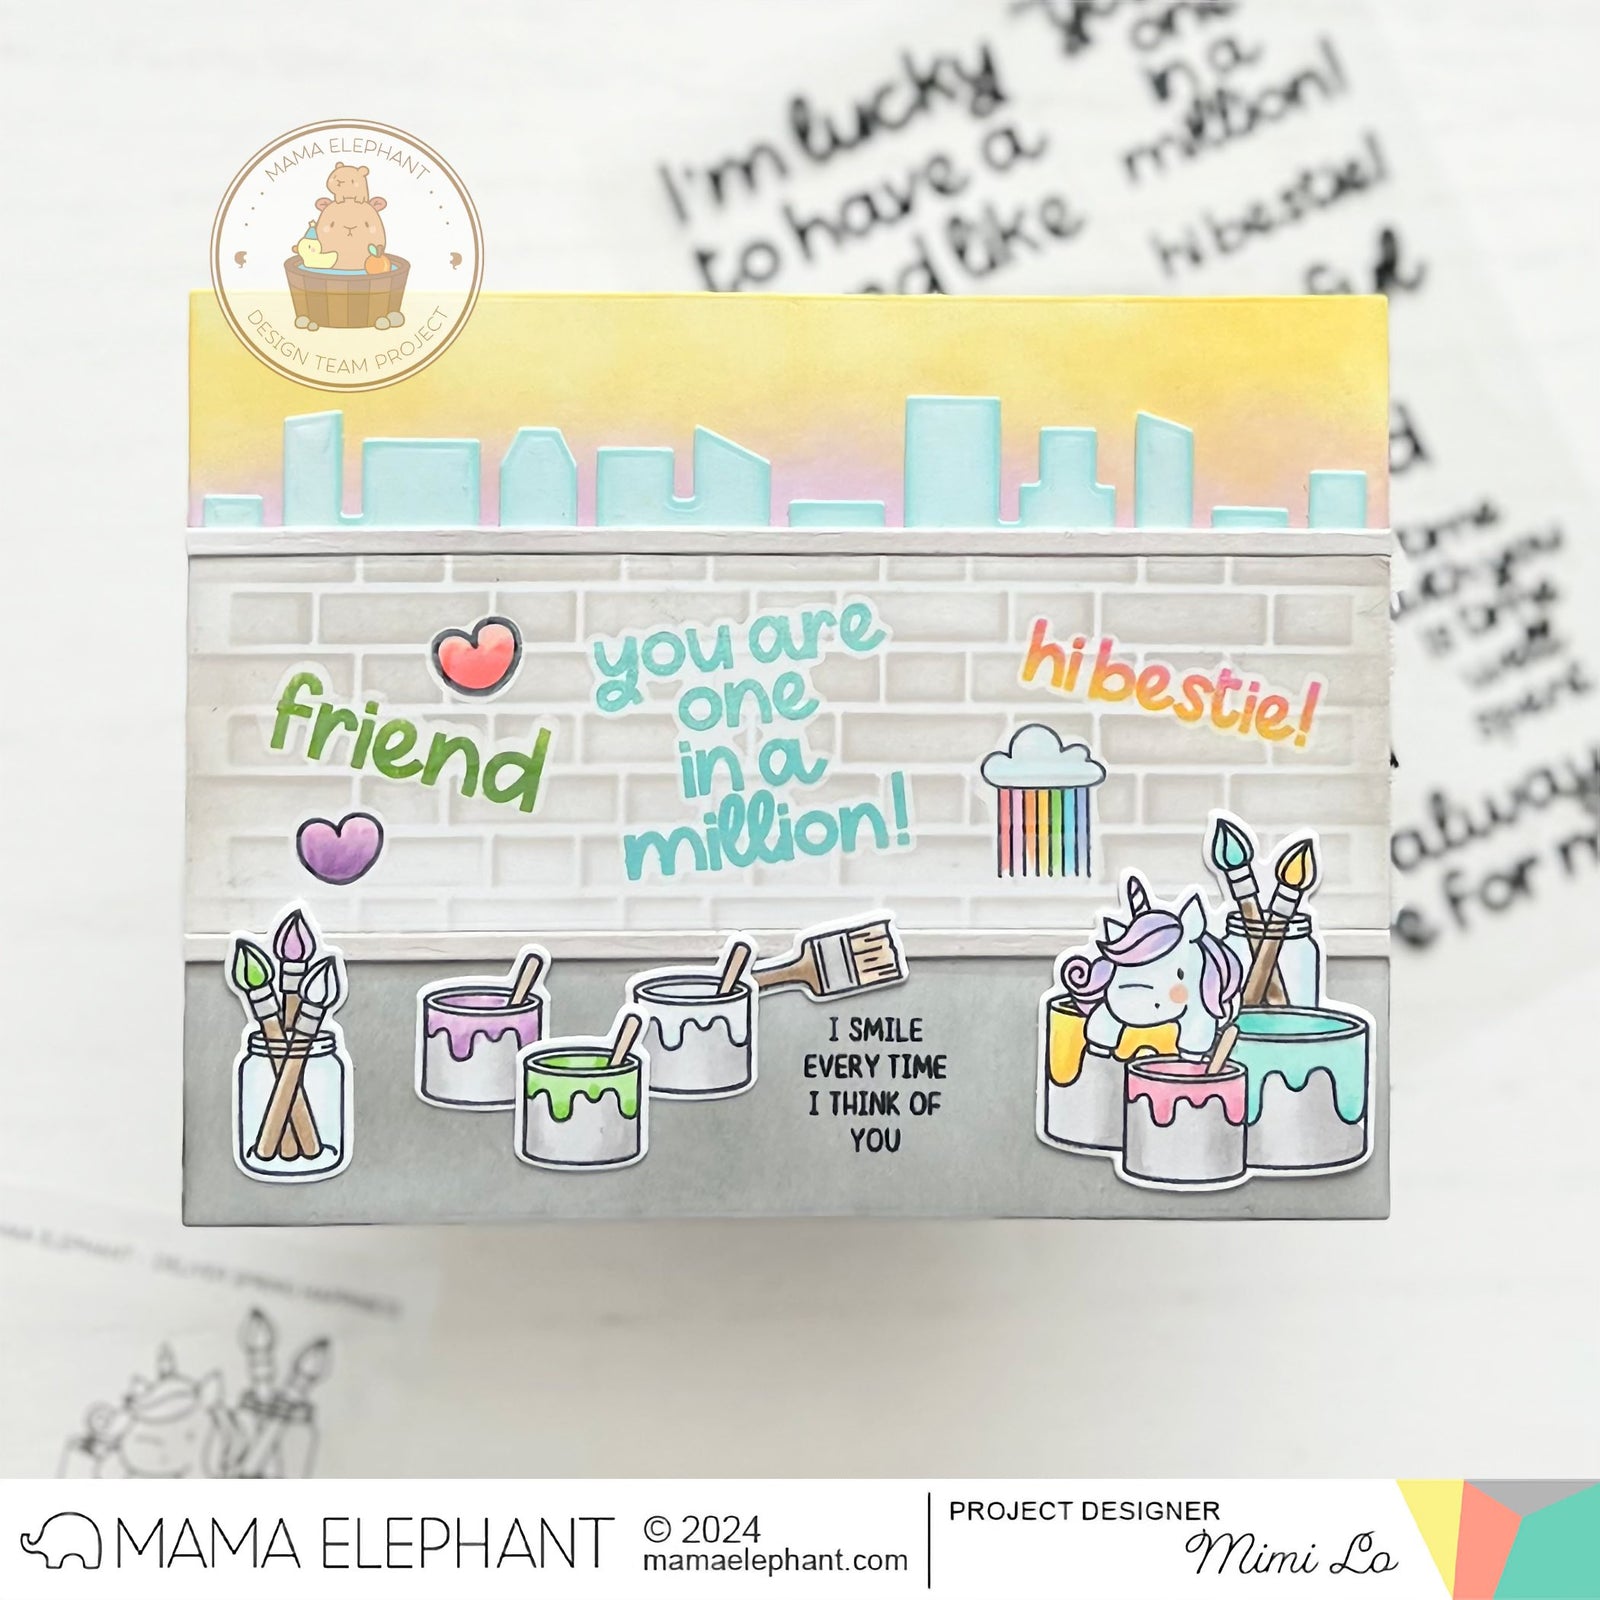 I'm lucky
to have a
like
one
in a
million!
hi bestie!
MAMA ELEPHANT
DESIGN TEAM PROJECT
friend
you are
one
in a
million!
hi bestie!
I SMILE
EVERY TIME
I THINK OF
YOU
always
MAMA ELEPHANT
© 2024
mamaelephant.com
PROJECT DESIGNER
Mimi Lo